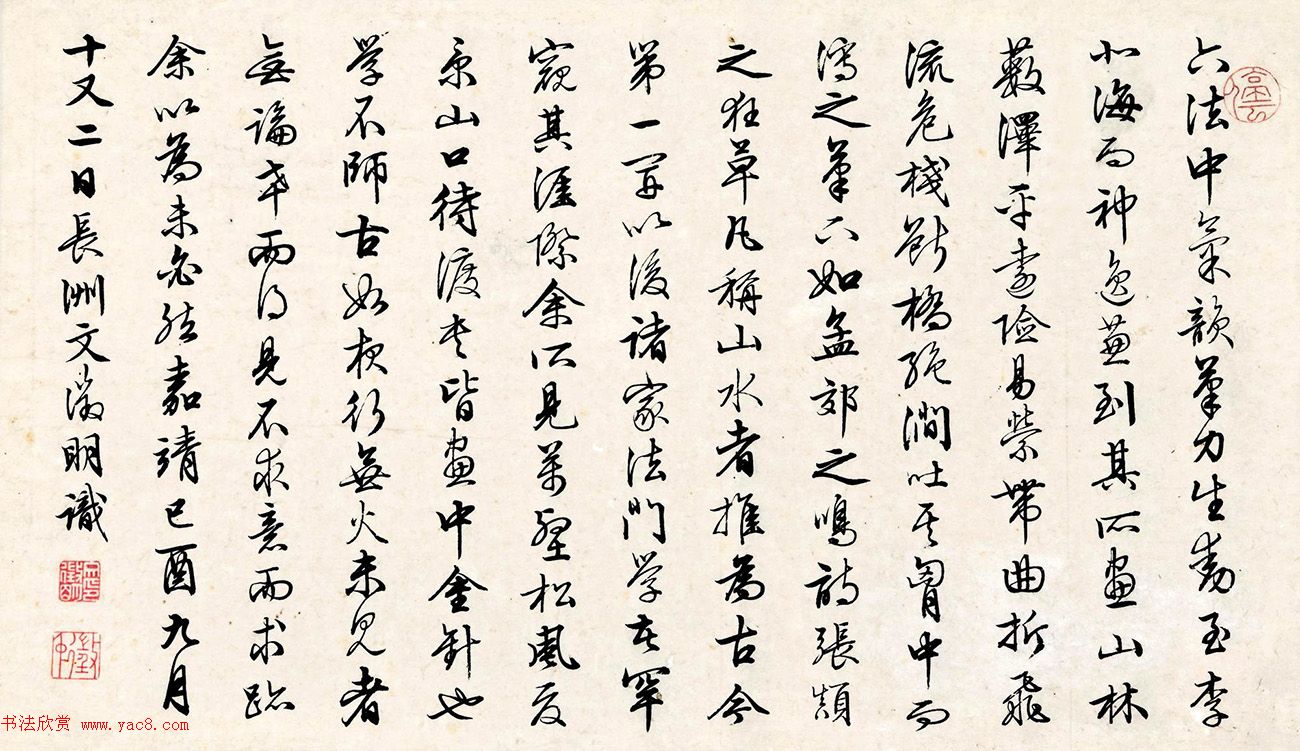 停雲
六法中氣韻筆力生動至李
北海而神逸兼到其所畫山林
藪澤平遠險易縈帶曲折飛
流危棧斷橋絕澗吐其胷中而
寫之筆下如孟郊之鳴詩張顛
之狂草凡稱山水者推為古今
第一以後諸家法門學者罕
窺其涯際余所見萬壑松風夏
景山口待渡卷皆畫中金針也
學不師古如夜行無火未見者
無論幸而得見不求意而求跡
余以為未必然嘉靖己酉九月
十又二日長洲文徵明識
书法欣赏 www.yac8.com